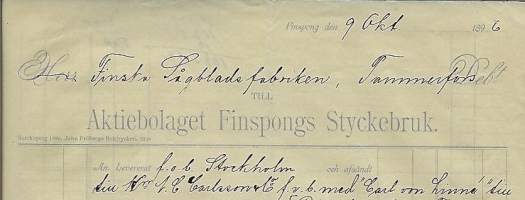 Finspong den 9 Okt 1896
Herr Finska Sågbladsfabriken, Tammerfors Debet
TILL
Aktiebolaget Finspongs Styckebruk.
Norrköping 1896, John
An levererat f.o.b. Stockholm och afsändt
till Hrr N. C. Carlsson & C f.v.b. med "Carl von Linné" till